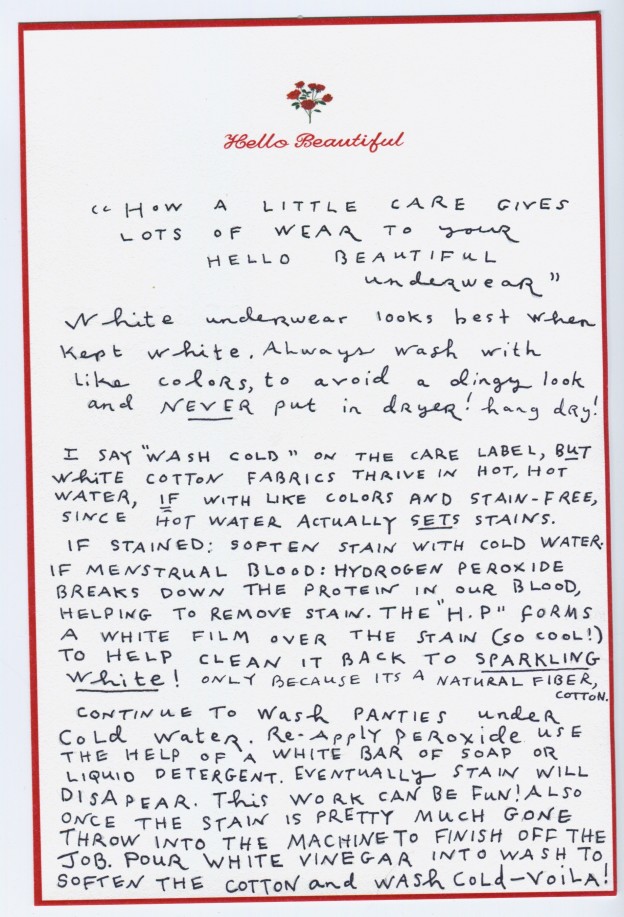 Hello Beautiful
"HOW A LITTLE CARE GIVES
LOTS OF WEAR TO your
HELLO BEAUTIFUL
underwear"
White underwear looks best when
kept white. Always wash with
like colors, to avoid a dingy look
and NEVER put in dryer! hang dry!
I SAY "WASH COLD" ON THE CARE LABEL, BUT
WHITE COTTON FABRICS THRIVE IN HOT, HOT
WATER, IF WITH LIKE COLORS AND STAIN-FREE,
SINCE HOT WATER ACTUALLY SETS STAINS.
IF STAINED: SOFTEN STAIN WITH COLD WATER.
IF MENSTRUAL BLOOD: HYDROGEN PEROXIDE
BREAKS DOWN THE PROTEIN IN OUR BLOOD,
HELPING TO REMOVE STAIN. THE "H.P" FORMS
A WHITE FILM OVER THE STAIN (SO COOL!)
TO HELP CLEAN IT BACK TO SPARKLING
White! ONLY BECAUSE ITS A NATURAL FIBER,
COTTON.
CONTINUE TO Wash PANTIES under
Cold Water. Re-Apply PEROXIDE USE
THE HELP OF A WHITE BAR OF SOAP OR
LIQUID DETERGENT. EVENTUALLY STAIN WILL
DISAPEAR. This WORK CAN BE FUN! ALSO
ONCE THE STAIN IS PRETTY MUCH GONE
THROW INTO THE MACHINE TO FINISH OFF THE
JOB. POUR WHITE VINEGAR INTO WASH TO
SOFTEN THE COTTON and WASH COLD-VOILA!